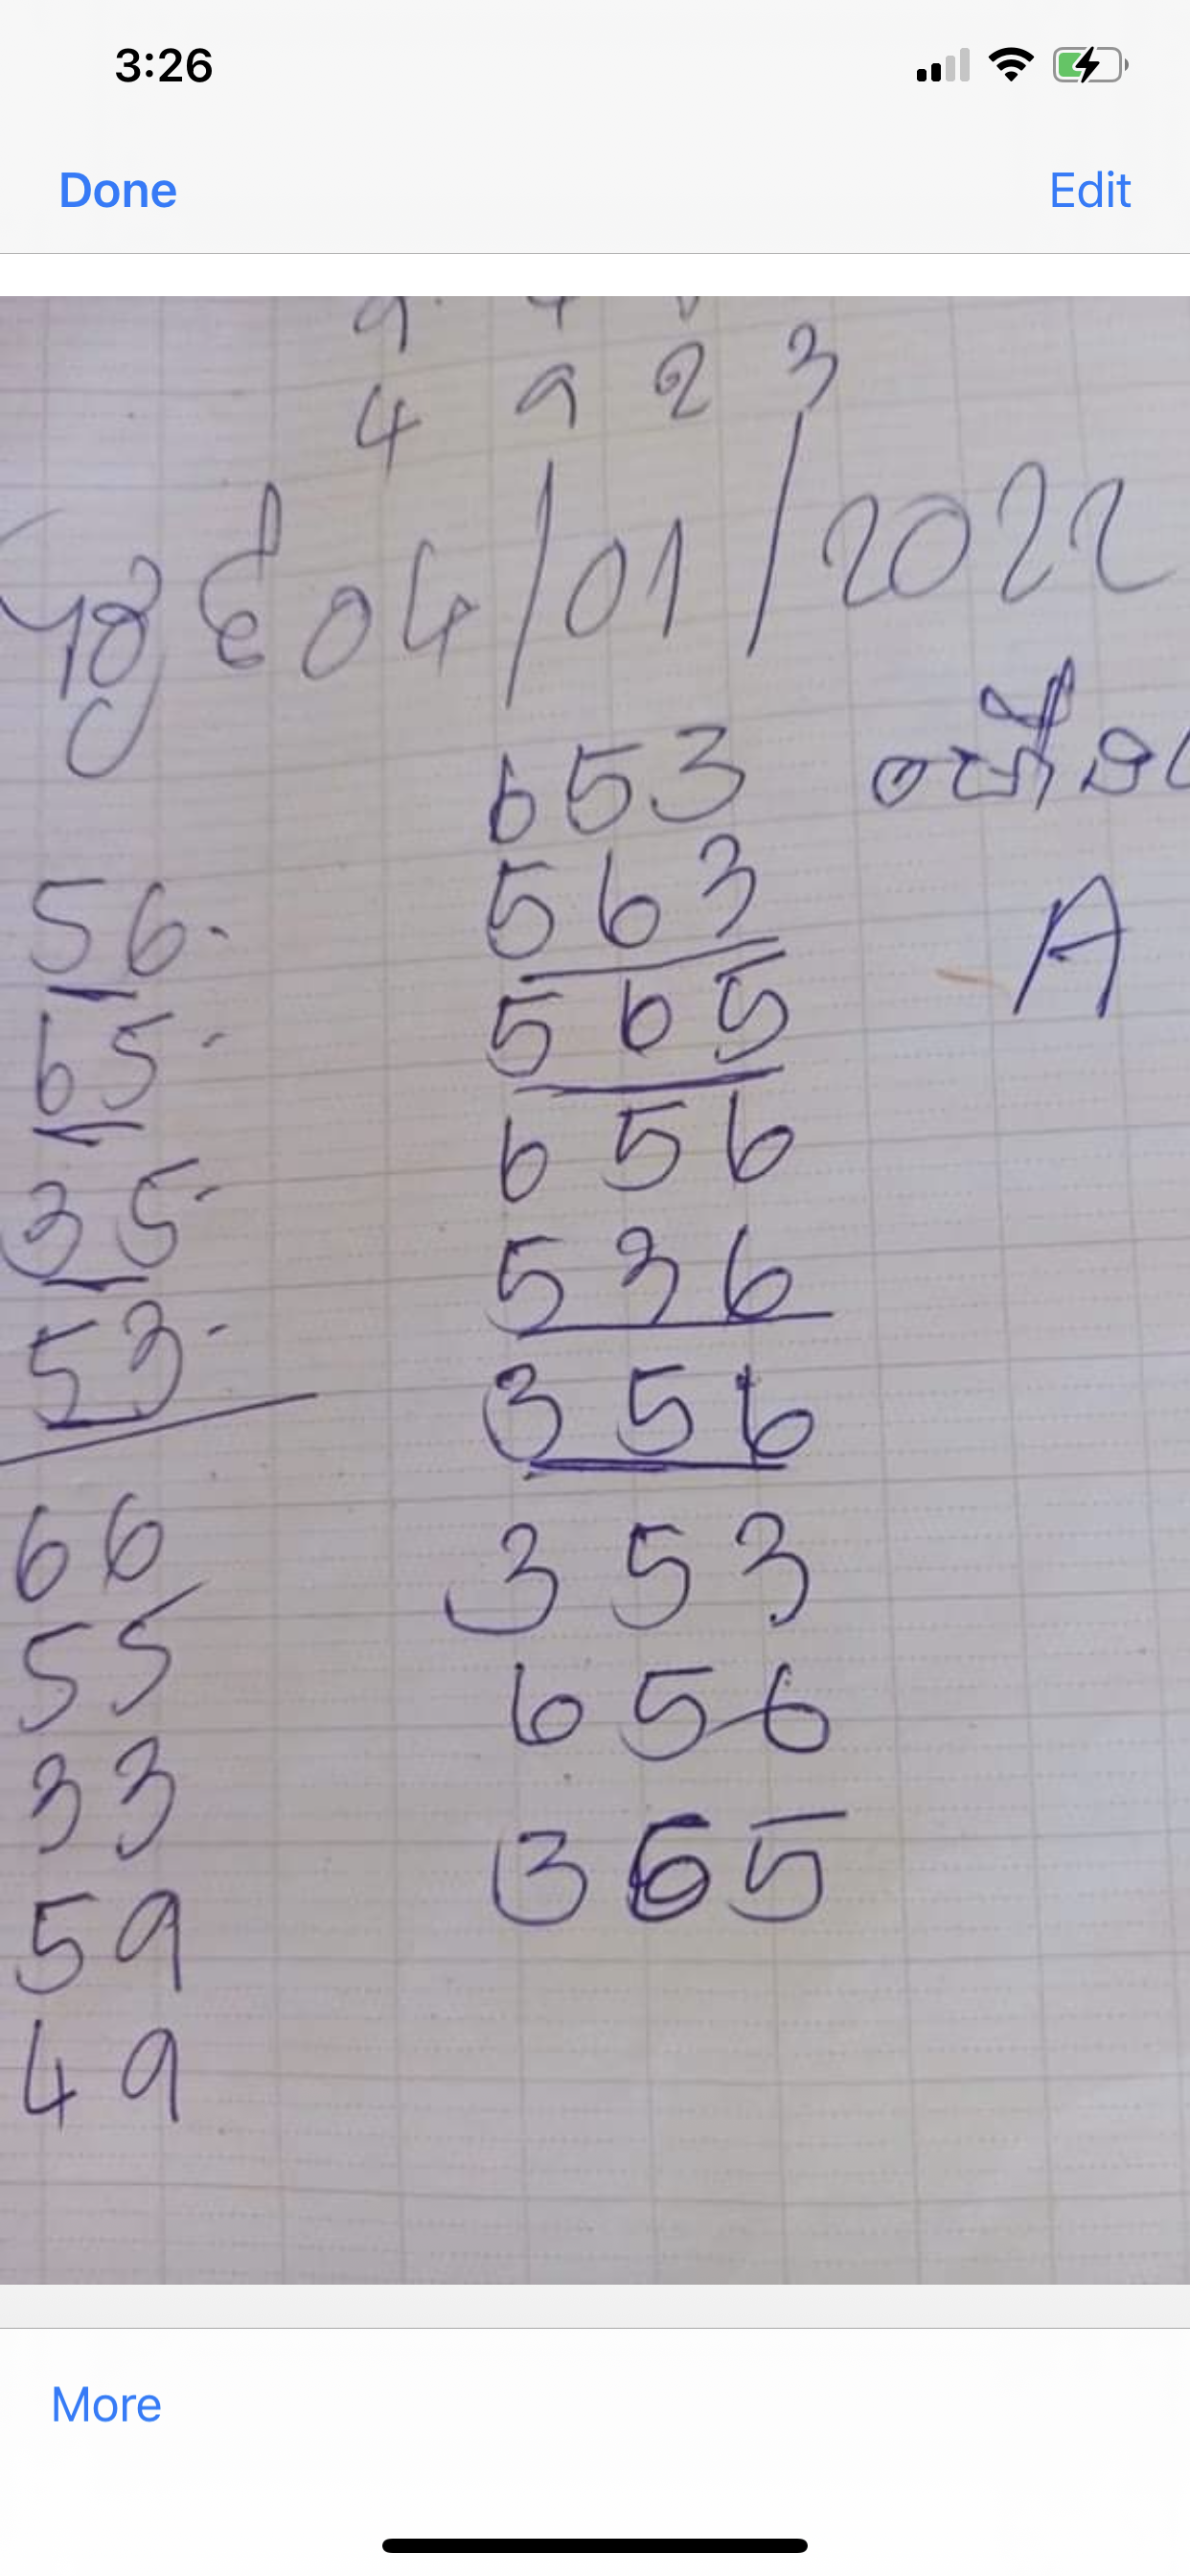 3:26
Done Edit
4 9 2 3
04/01/2022
653
563
A
56.
565
65.
656
35.
536
53.
356
66
353
55
656
33
365
59
49
More